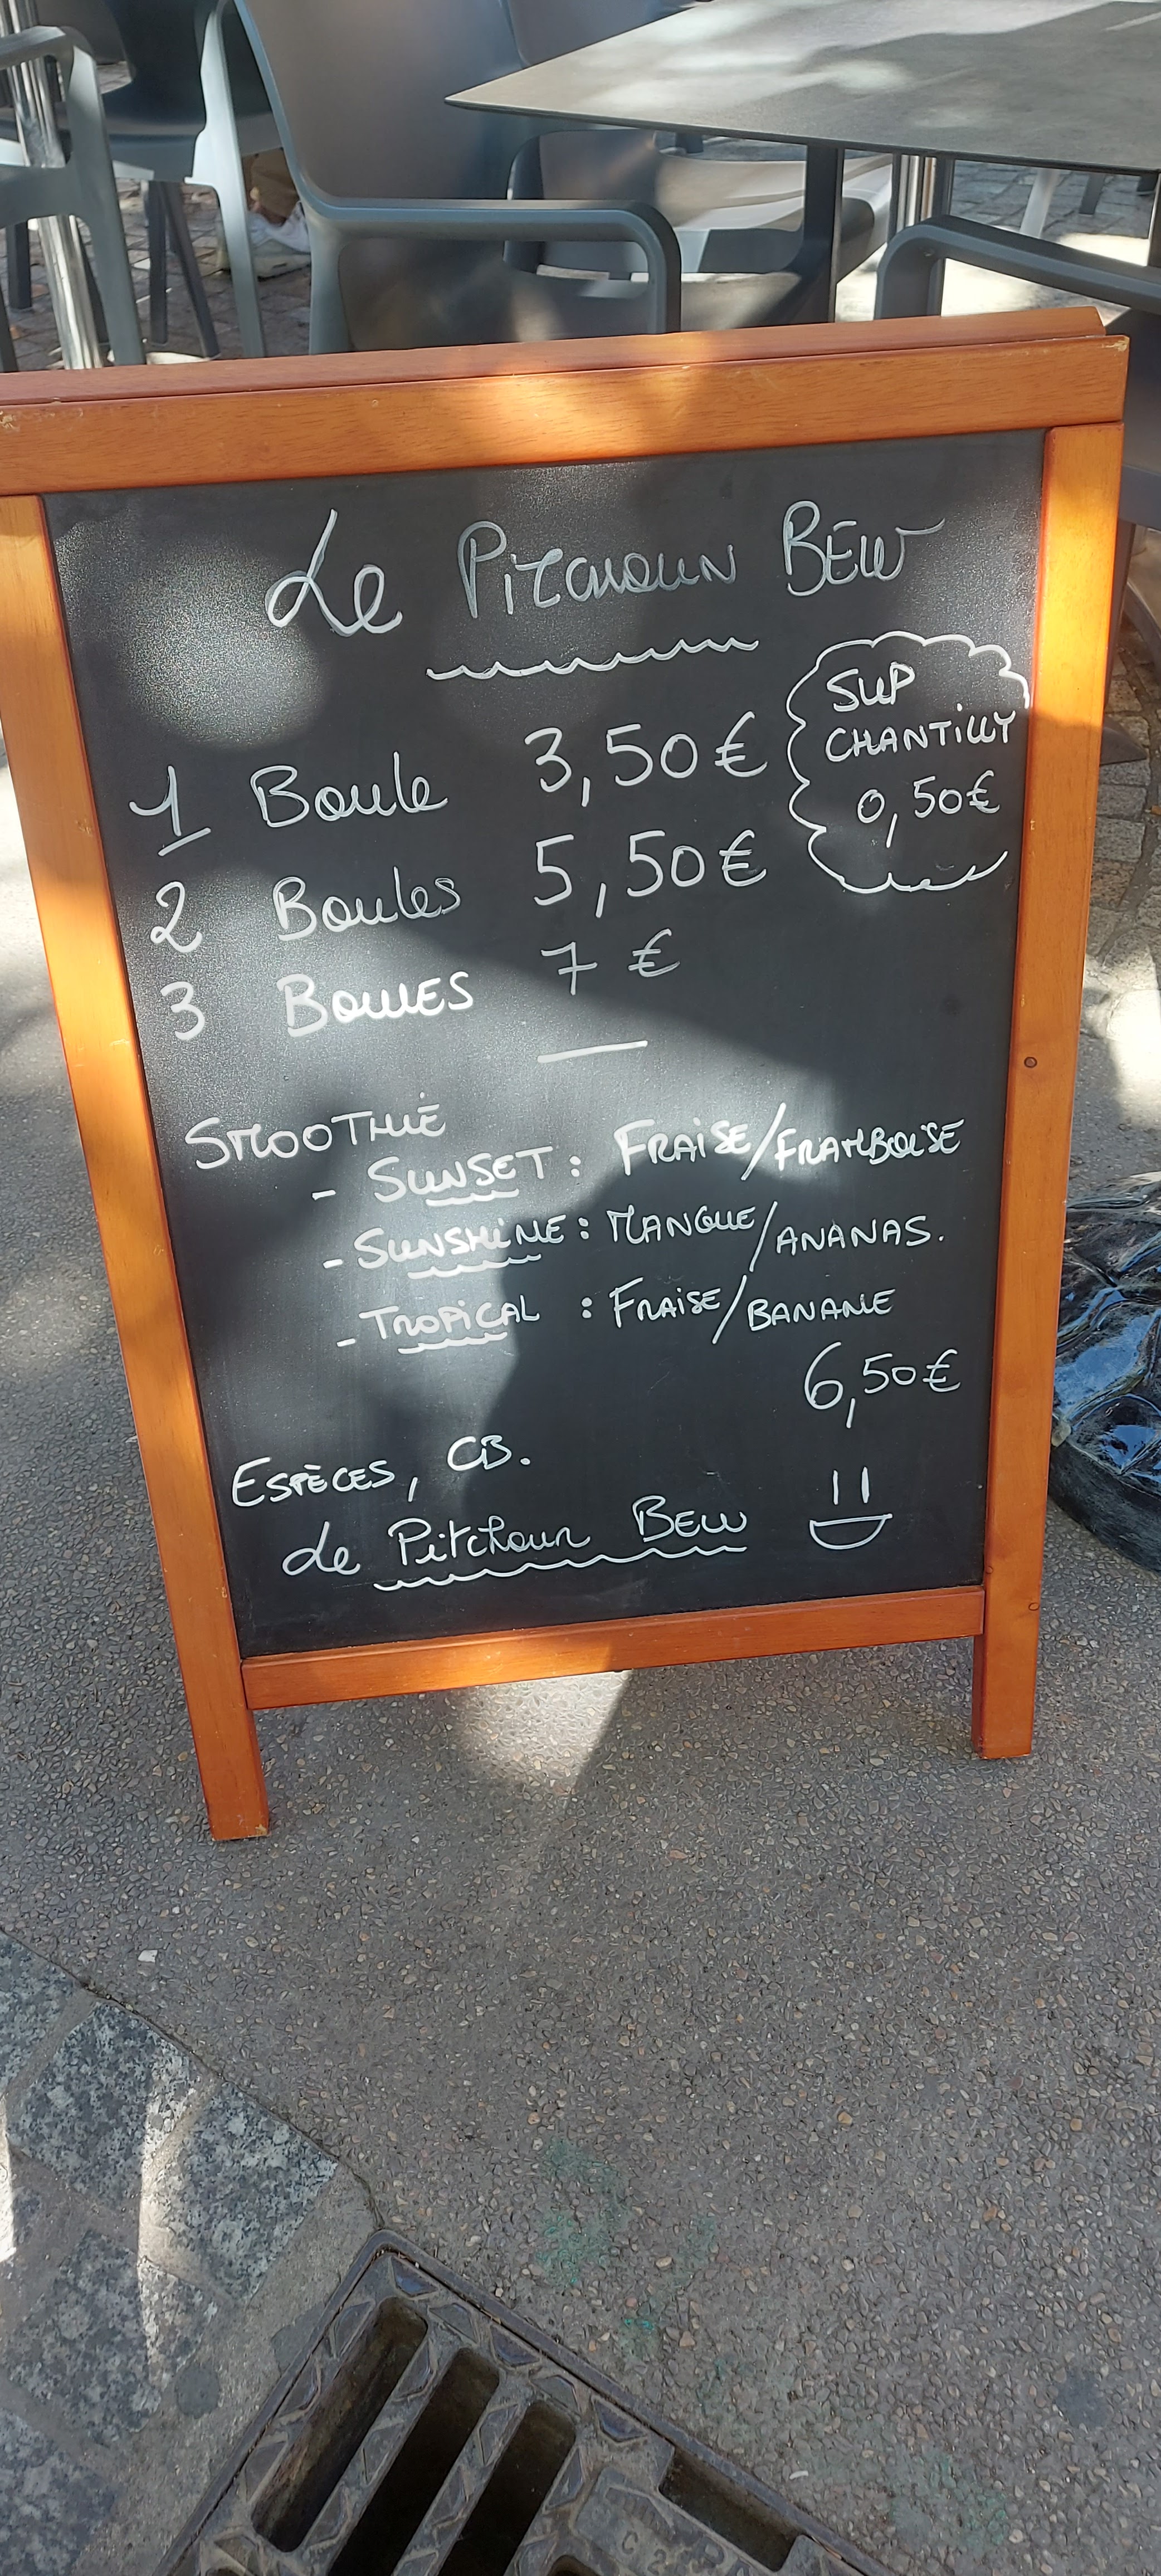 Le PITCHOUN BEW
SUP
CHANTILLY
0,50€
1 Boule 3,50€
2 Boules 5,50€
3 BOULES 7 €
SMOOTHIE
- SUNSET : FRAISE/FRAMBOISE
- SUNSHINE : MANGUE/ANANAS.
- TROPICAL : FRAISE/BANANE
6,50€
ESPÈCES, CB.
Le Pitchoun BEW